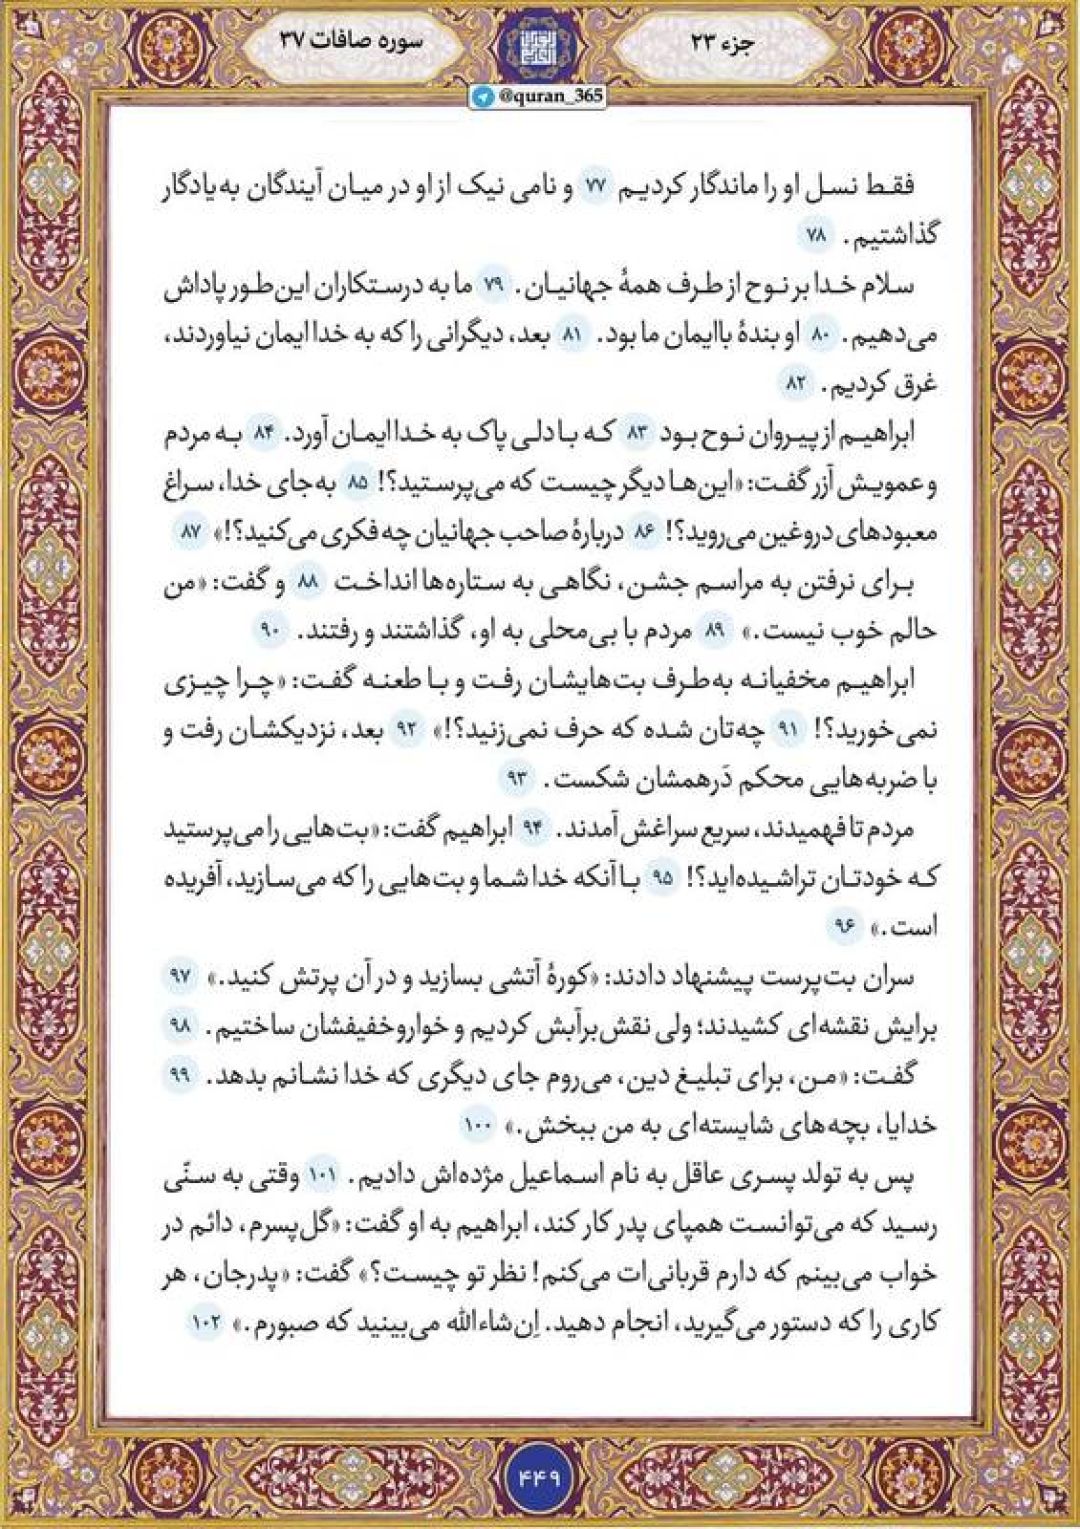 جزء ۲۳
سوره صافات ۳۷
@quran_365
فقط نسل او را ماندگار کردیم ۷۷ و نامی نیک از او در میان آیندگان به‌یادگار
گذاشتیم. ۷۸
سلام خدا بر نوح از طرف همهٔ جهانیان. ۷۹ ما به درستکاران این‌طور پاداش
می‌دهیم. ۸۰ او بندهٔ باایمان ما بود. ۸۱ بعد، دیگرانی را که به خدا ایمان نیاوردند،
غرق کردیم. ۸۲
ابراهیم از پیروان نوح بود ۸۳ که با دلی پاک به خدا ایمان آورد. ۸۴ به مردم
و عمویش آزر گفت: «این‌ها دیگر چیست که می‌پرستید؟! ۸۵ به‌جای خدا، سراغ
معبودهای دروغین می‌روید؟! ۸۶ دربارهٔ صاحب جهانیان چه فکری می‌کنید؟!» ۸۷
برای نرفتن به مراسم جشن، نگاهی به ستاره‌ها انداخت ۸۸ و گفت: «من
حالم خوب نیست.» ۸۹ مردم با بی‌محلی به او، گذاشتند و رفتند. ۹۰
ابراهیم مخفیانه به‌طرف بت‌هایشان رفت و با طعنه گفت: «چرا چیزی
نمی‌خورید؟! ۹۱ چه‌تان شده که حرف نمی‌زنید؟!» ۹۲ بعد، نزدیکشان رفت و
با ضربه‌هایی محکم دَرهمشان شکست. ۹۳
مردم تا فهمیدند، سریع سراغش آمدند. ۹۴ ابراهیم گفت: «بت‌هایی را می‌پرستید
که خودتان تراشیده‌اید؟! ۹۵ با آنکه خدا شما و بت‌هایی را که می‌سازید، آفریده
است.» ۹۶
سران بت‌پرست پیشنهاد دادند: «کورهٔ آتشی بسازید و در آن پرتش کنید.» ۹۷
برایش نقشه‌ای کشیدند؛ ولی نقش‌برآبش کردیم و خواروخفیفشان ساختیم. ۹۸
گفت: «من، برای تبلیغ دین، می‌روم جای دیگری که خدا نشانم بدهد. ۹۹
خدایا، بچه‌های شایسته‌ای به من ببخش.» ۱۰۰
پس به تولد پسری عاقل به نام اسماعیل مژده‌اش دادیم. ۱۰۱ وقتی به سنّی
رسید که می‌توانست همپای پدر کار کند، ابراهیم به او گفت: «گل‌پسرم، دائم در
خواب می‌بینم که دارم قربانی‌ات می‌کنم! نظر تو چیست؟» گفت: «پدرجان، هر
کاری را که دستور می‌گیرید، انجام دهید. اِن‌شاءالله می‌بینید که صبورم.» ۱۰۲
۴۴۹